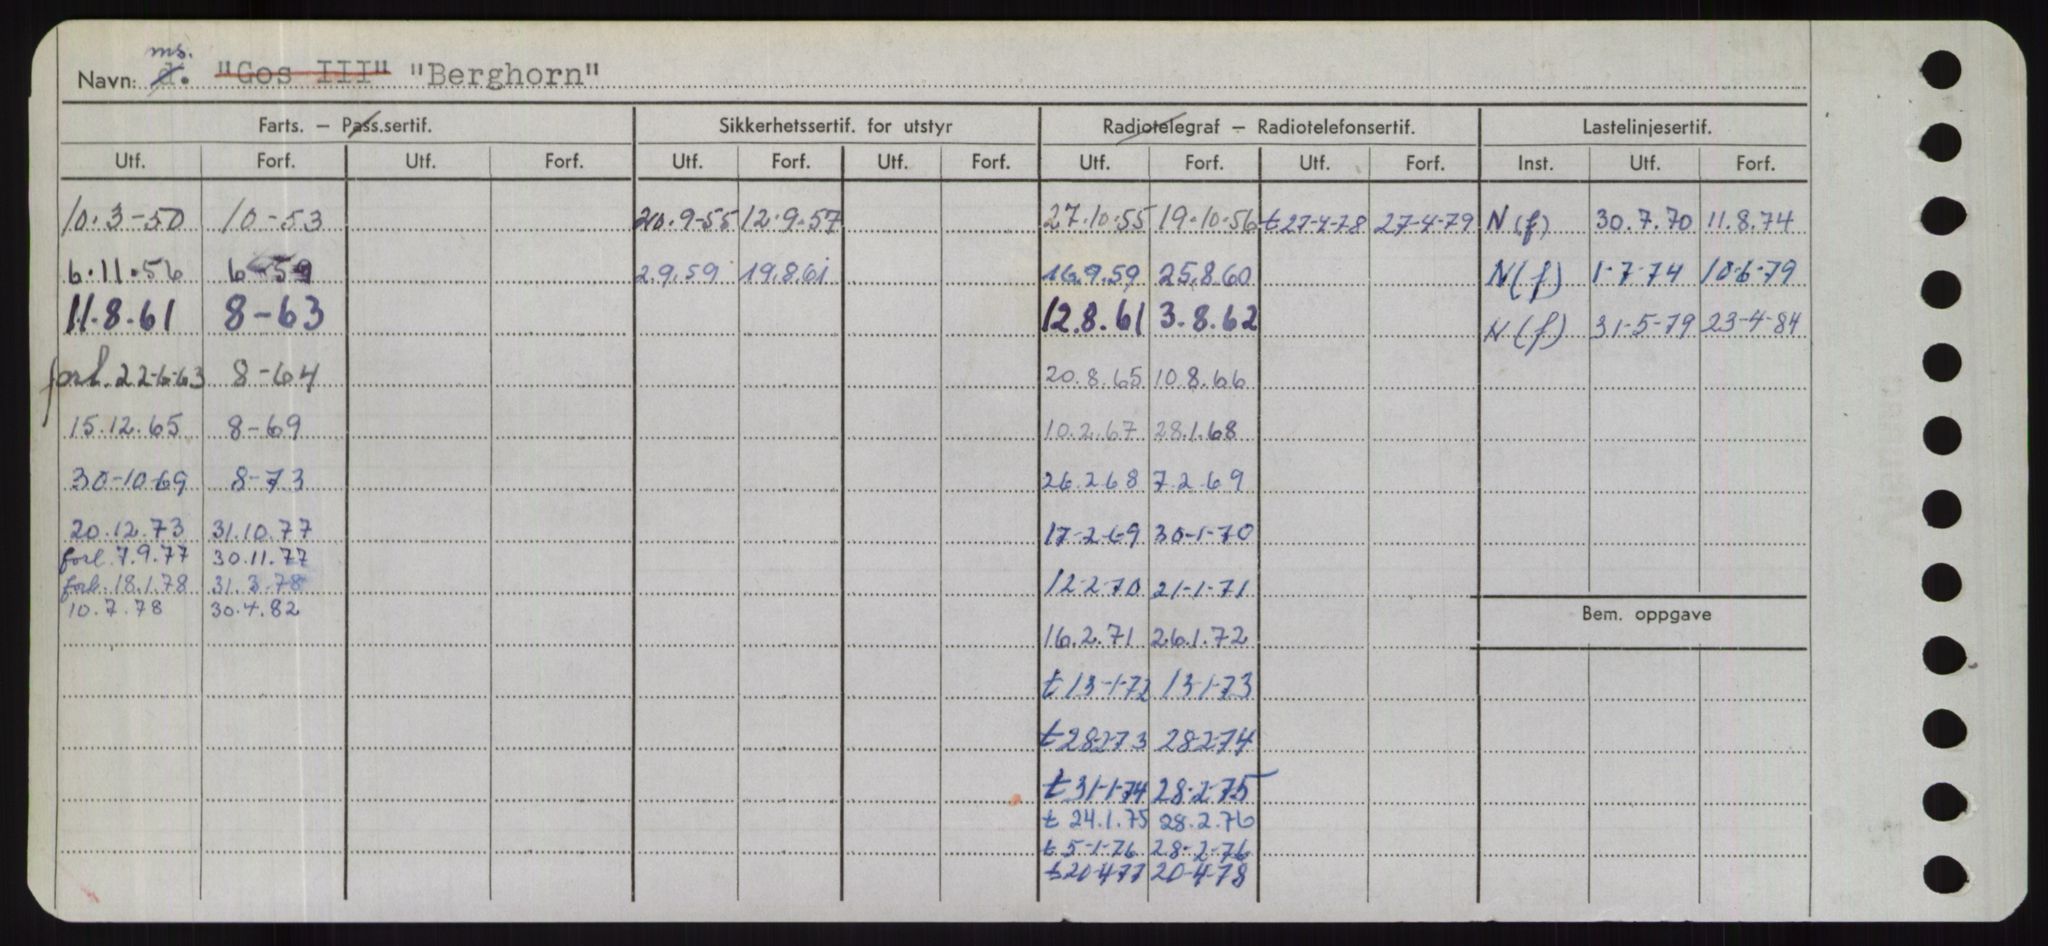 ms.
Navn: d. "Gos III" "Berghorn"
Farts. — Pass.sertif. Sikkerhetssertif. for utstyr Radiotelegraf — Radiotelefonsertif. Lastelinjesertif.
Utf. Forf. Utf. Forf. Utf. Forf. Utf. Forf. Utf. Forf. Utf. Forf. Inst. Utf. Forf.
10.3-50 10-53 20.9-55 12.9.57 27.10.55 19.10.56 t 27-4-78 27-4-79 N(f) 30.7.70 11.8.74
6.11.56 6-59 2.9.59 19.8.61 16.9.59 25.8.60 N(f) 1-7-74 10-6-79
11.8.61 8-63 12.8.61 3.8.62 N(f) 31-5-79 23-4-84
forl. 22-6-63 8-64 20.8.65 10.8.66
15.12.65 8-69 10.2.67 28.1.68
30-10-69 8-73 26.2.68 7.2.69
20.12.73 31.10.77 17-2-69 30-1-70
forl. 7.9.77 30.11.77
forl. 18.1.78 31.3.78 12-2-70 21-1-71
10.7.78 30.4.82
Bem. oppgave
16.2.71 26.1.72
t 13-1-72 13-1-73
t 28-2-73 28-2-74
t 31-1-74 28-2-75
t 24.1.75 28.2.76
t 5-1-76 28-2-76
t 20-4-77 20-4-78